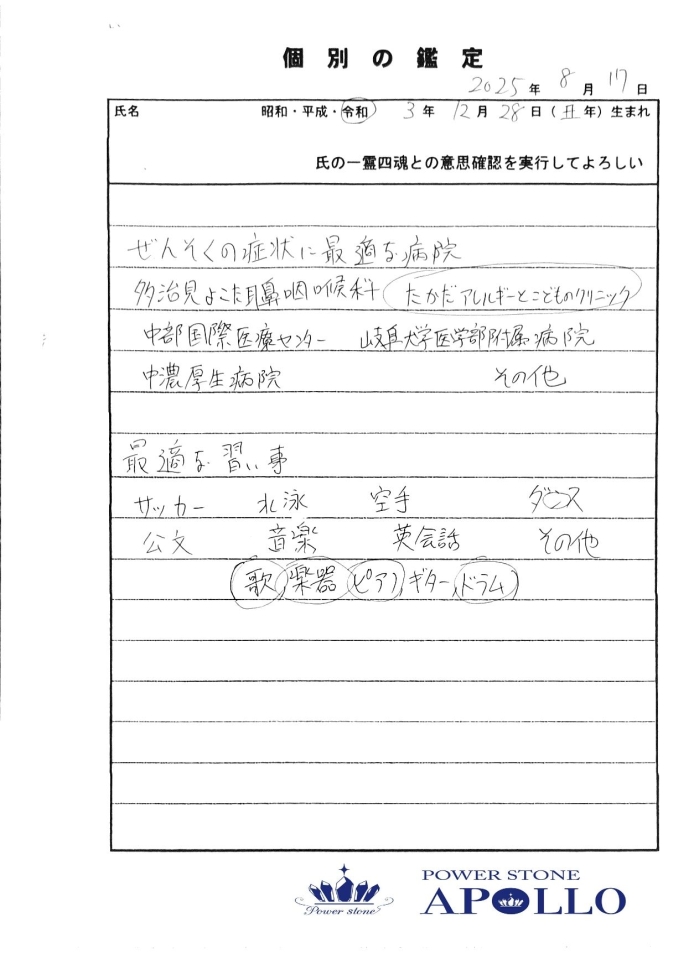 個別の鑑定
2025年 8月 17日
氏名 昭和・平成・令和 3年 12月 28日(丑年)生まれ
氏の一霊四魂との意思確認を実行してよろしい
ぜんそくの症状に最適な病院
多治見よこた耳鼻咽喉科 たかだアレルギーとこどものクリニック
中部国際医療センター 岐阜大学医学部附属病院
中濃厚生病院 その他
最適な習い事
サッカー 水泳 空手 ダンス
公文 音楽 英会話 その他
(歌,楽器,ピアノ,ギター,ドラム)
Power stone
POWER STONE
APOLLO